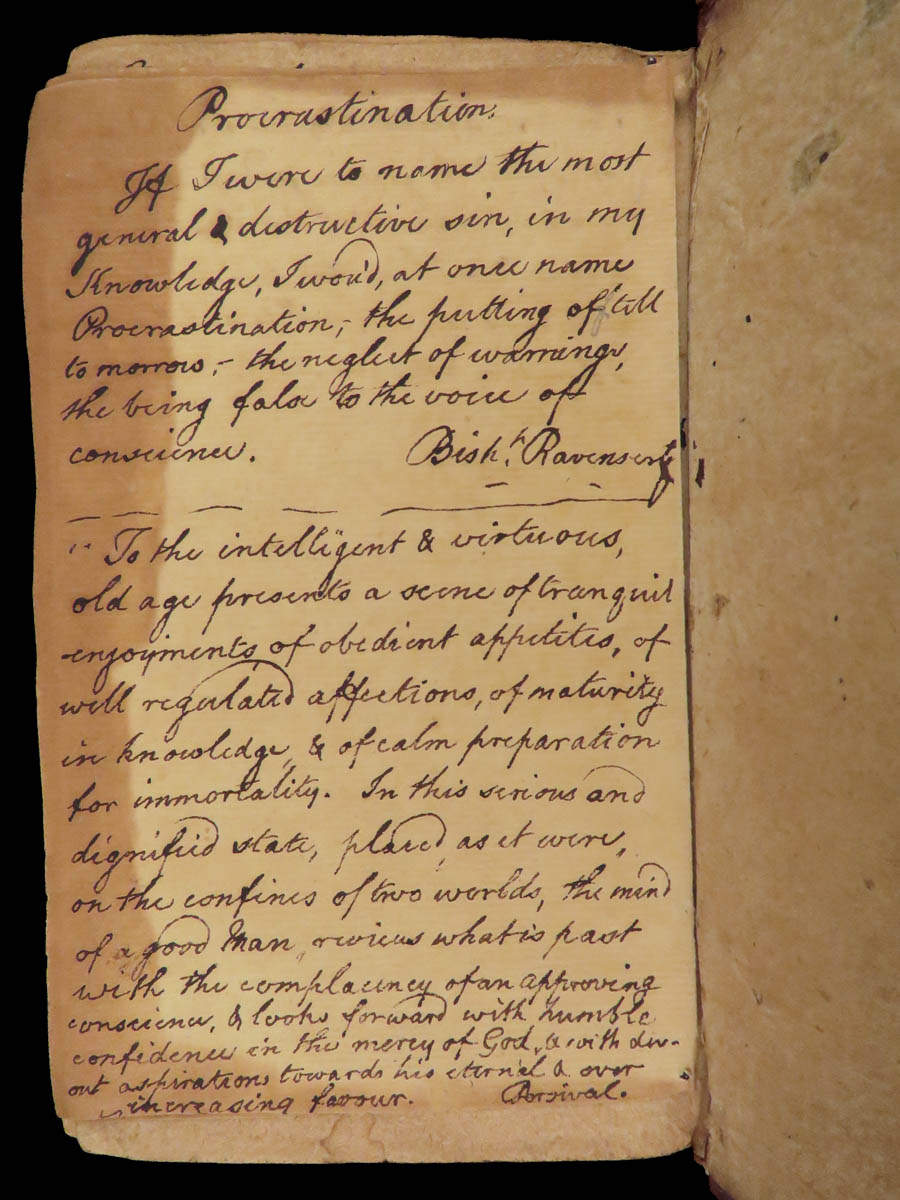 Procrastination.
If I were to name the most
general & destructive sin, in my
Knowledge, I wou'd, at once name
Procrastination,- the putting off 'till
to morrow,- the neglect of warnings,
the being false to the voice of
conscience. Bish.
" To the intelligent & virtuous,
old age presents a scene of tranquil
enjoyments of obedient appetites, of
well regulated affections, of maturity
in knowledge, & of calm preparation
for immortality. In this serious and
dignified state, placed, as it were,
on the confines of two worlds, the mind
of a good Man, reviews what is past
with the complacency of an approving
conscience, & looks forward with humble
confidence in the mercy of God, & with dev-
out aspirations towards his eternal & ever
increasing favour. Persival.